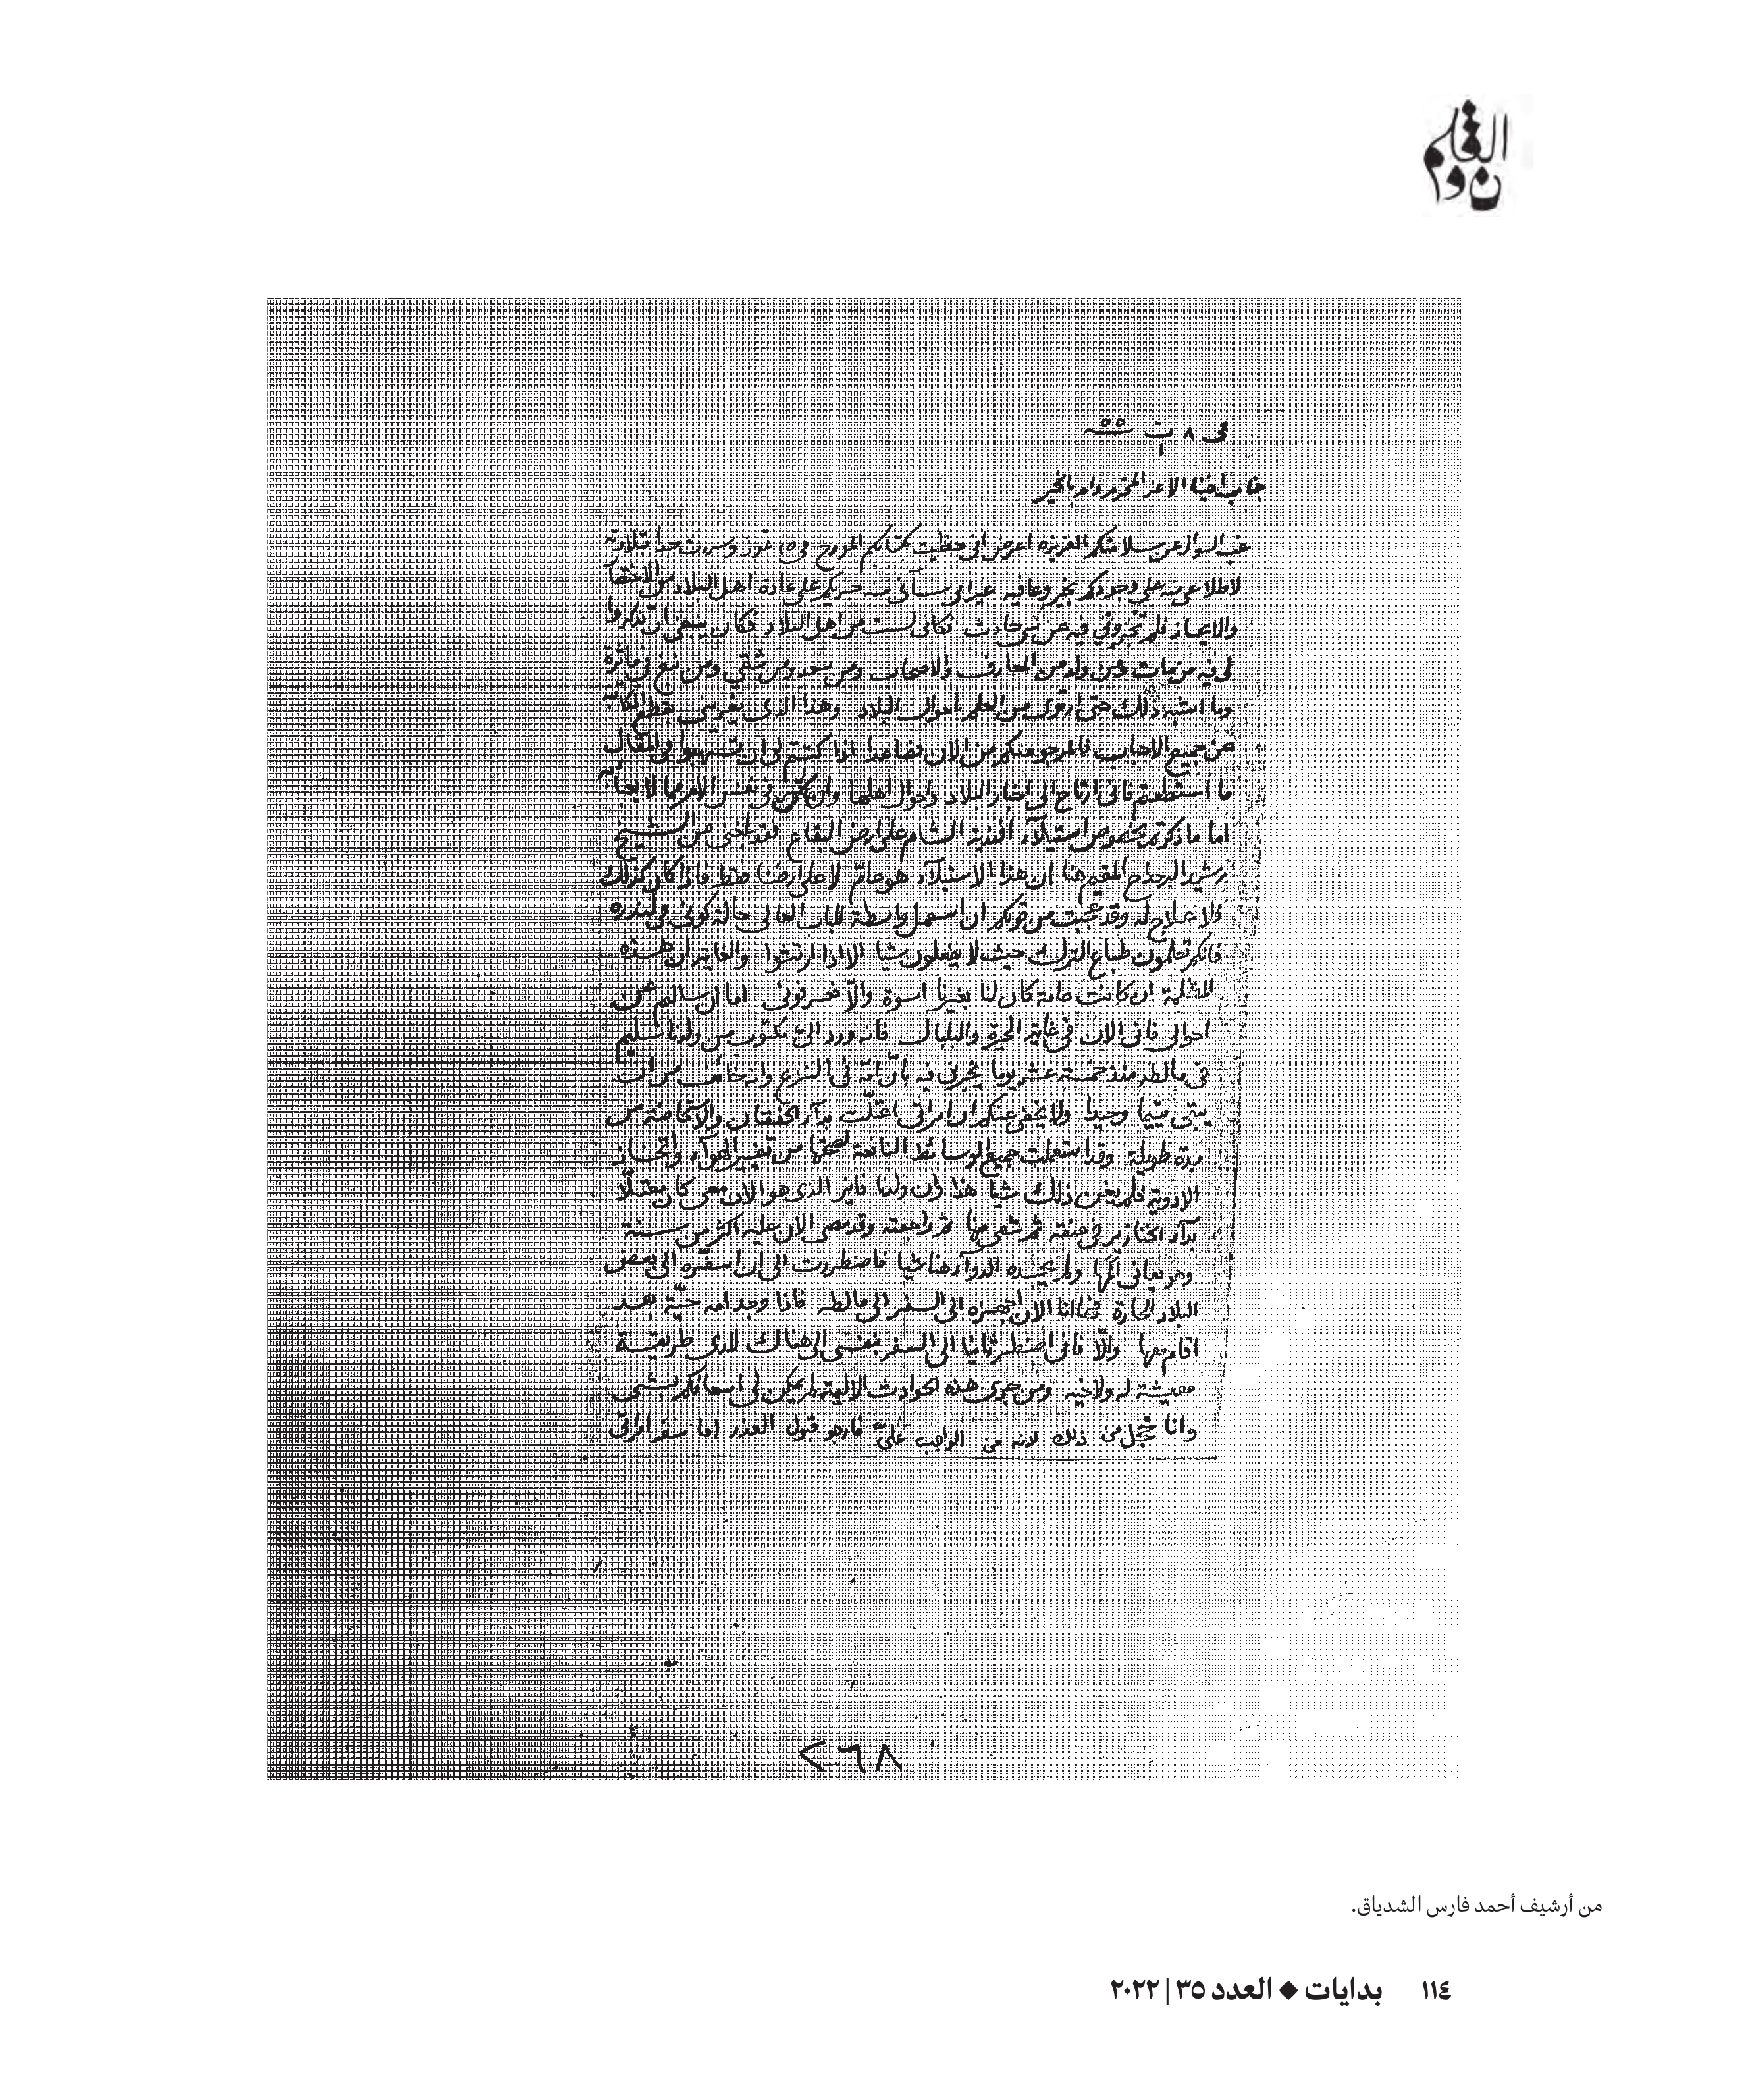 ن والقلم
في ٨ ت١ سنة ٥٥
جناب اخينا الاعز المحترم دام بالخير
غب السوال عن سلامتكم العزيزه اعرض انى حظيت بكتابكم المورخ فى ١٥ تموز وسررت جدا بتلاوته
لاطلاعى منه على وجودكم بخير وعافيه غير انى سآنى منه جريكم على عادة اهل البلاد من الاختصار
والايجاز فلم تخبرونى فيه عن شى حادث فكانى لست من اهل البلاد فكان ينبغى ان تذكروا
لى فيه من مات ومن ولد من المعارف والاصحاب ومن سعد ومن شقي ومن نبغ فى ماثرة
وما اشبه ذلك حتى ارتوى من العلم باحوال البلاد وهذا الذى يغرينى بقطع المكاتبة
عن جميع الاحباب فالمرجو منكم من الان فصاعدا اذا كتبتم لى ان تسهبوا فى المقال
ما استطعتم فانى ارتاح الى اخبار البلاد واحوال اهلها وان تكن فى نفس الامر مما لا يعبأ به
اما ما ذكرتم بخصوص استيلآء افندية الشام على ارض البقاع فقد بلغنى من الشيخ
رشيد الدحداح المقيم هنا ان هذا الاستيلآء هو عامّ لا على ارضنا فقط فاذا كان كذلك
فلا علاج له وقد عجبت من قولكم ان استعمل واسطة للباب العالى حالة كونى فى لندره
فانكم تعلمون طباع الترك حيث لا يفعلون شيا الا اذا ارتشوا والغاية ان هذه
المظلمة ان كانت عامة كان لنا بغيرنا اسوة والاّ فعرفونى اما ان سالتم عن
احوالى فانى الان فى غاية الحيرة والبلبال فانه ورد اليّ مكتوب من ولدنا سليم
فى مالطه منذ خمسة عشر يوما يخبرنى فيه بانّ امّه فى النزع وانه خائف من ان
يبقى يتيما وحيدا ولا يخفى عنكم ان امراتى اعتلّت بدآء الخفقان والاستحاضة من
مدة طويلة وقد استعملت جميع الوسائط النافعة لصحتها من تغيير الهوآء واتخاذ
الادوية فلم يغن ذلك شيا هذا وان ولدنا فايز الذى هو الان معى كان معتلّا
بدآء الخنازير فى عنقه ثم شفى منها ثم راجعته وقد مضى الان عليه اكثر من سنة
وهو يعانى المها ولم يجده الدوآء هنا شيا فاضطررت الى ان اسفّره الى بعض
البلاد الحارة فها انا الان اجهزه الى السفر الى مالطه فاذا وجد امه حيّة بعد
اقام معها والّا فانى اضطر ثانيا الى السفر بنفسى الى هناك لارى طريقة
معيشة له ولاخيه ومن جرى هذه الحوادث الاليمة لم يمكن لى اسعافكم بشى
وانا خجل من ذلك لانه من الواجب عليّ فارجو قبول العذر اما سفر امراتى
٢٦٨
من أرشيف أحمد فارس الشدياق.
١١٤ بدايات ◆ العدد ٣٥ | ٢٠٢٢